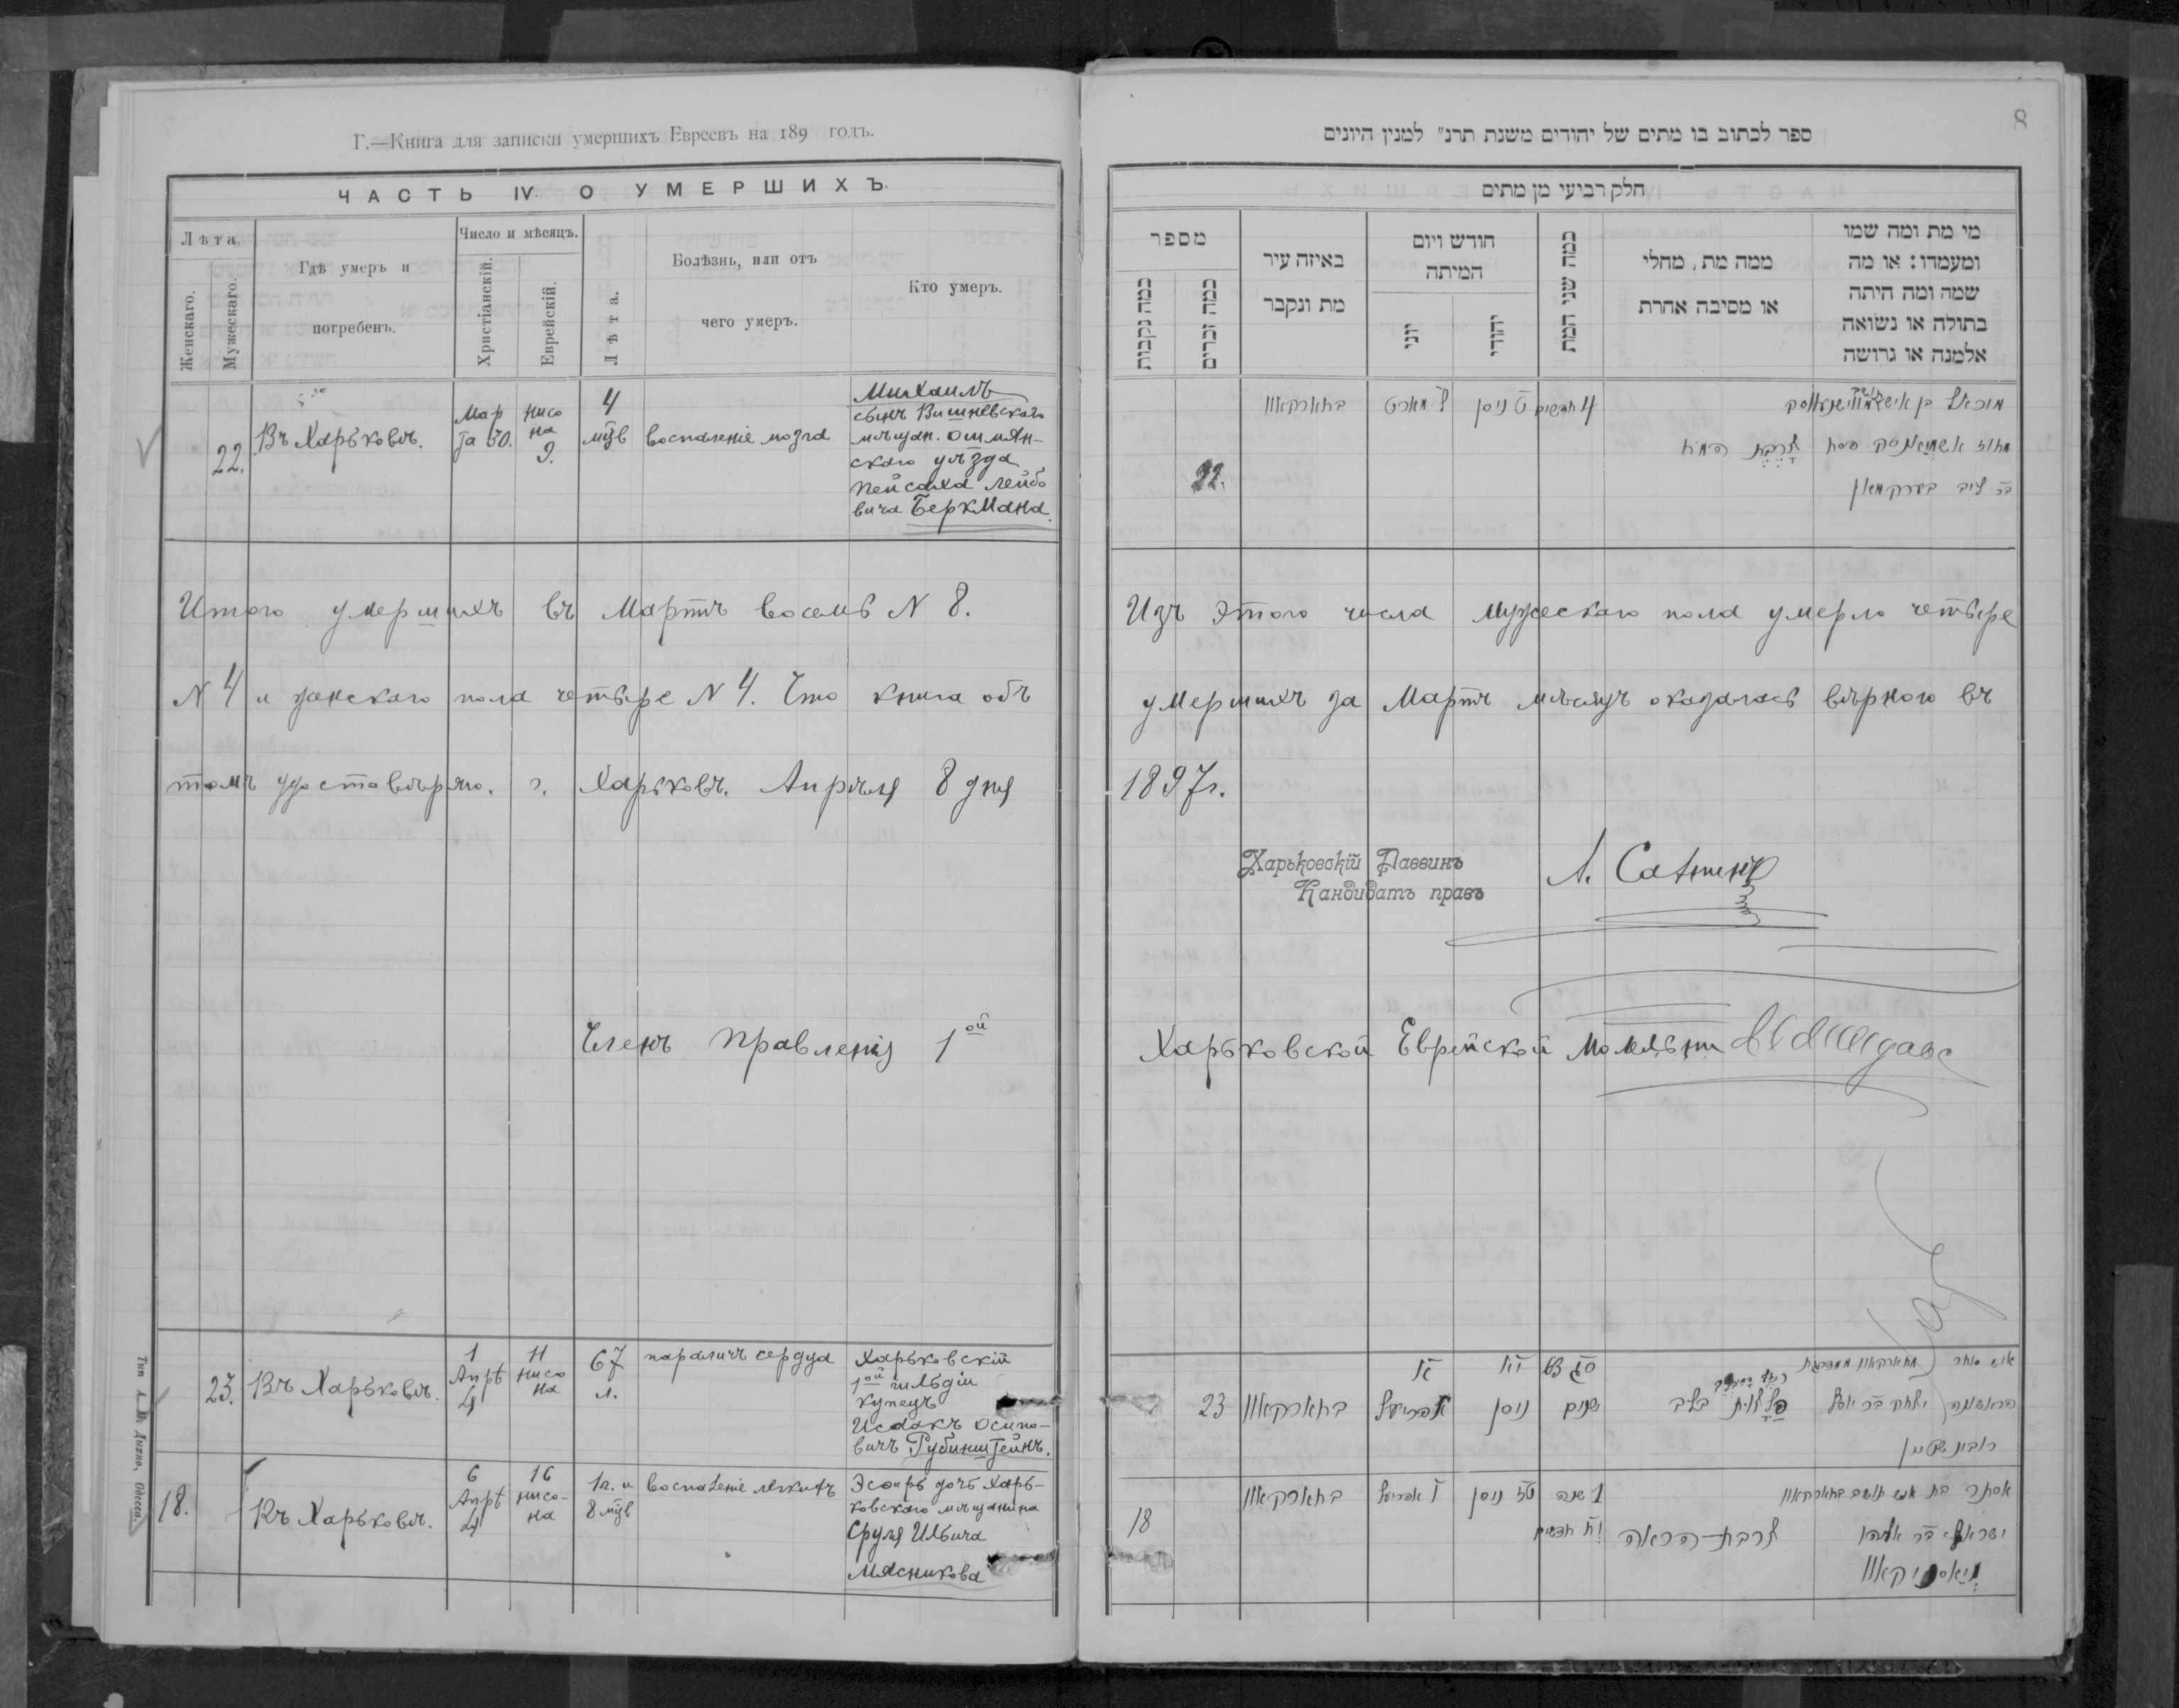 Г.—Книга для записки умершихъ Евреевъ на 189 годъ.
ЧАСТЬ IV. О УМЕРШИХЪ.
Лѣта.
Женскаго.
Мужескаго.
Гдѣ умеръ и
погребенъ.
Число и мѣсяцъ.
Христіанскій.
Еврейскій.
Лѣта.
Болѣзнь, или отъ
чего умеръ.
Кто умеръ.
22.
Въ Харьковѣ.
Мар
та 30.
нисо
на
9.
4
мѣв
воспаленіе мозга
Михаилъ
сынъ Вишневскаго
мѣщан. Ошмян-
скаго уѣзда
Пейсаха Лейбо
вича Беркмана.
Итого умершихъ въ Мартѣ восемь N 8.
N 4 и женскаго пола четыре N 4. Что книга объ
томъ удостовѣряю. г. Харьковъ. Апрѣля 8 дня
Членъ Правленія 1ой
23.
Въ Харьковѣ.
1
Апрѣ
ля
11
нисо
на
67
л.
параличъ сердца
Харьковскій
1ой гильдіи
купецъ
Исаакъ Осипо-
вичъ Рубинштейнъ.
18.
Въ Харьковѣ.
6
Апрѣ
ля
16
нисо-
на
1г. и
8 мѣв
воспаленіе легкихъ
Эсѳирь дочь Харь-
ковскаго мѣщанина
Сруля Ильича
Мясникова
Тип. А. М. Дыхно, Одесса.
8
ספר לכתוב בו מתים של יהודים משנת תרנ״ למנין היונים
חלק רביעי מן מתים
מספר
כמה נקבות
כמה זכרים
באיזה עיר
מת ונקבר
חודש ויום
המיתה
יוני
יהודי
כמה שני המת
ממה מת, מחלי
או מסיבה אחרת
מי מת ומה שמו
ומעמדו: או מה
שמה ומה היתה
בתולה או נשואה
אלמנה או גרושה
22.
בחארקאוו
ל מארט
ט ניסן
4 חדשים
צרבת המוח
מיכאל בן איש
מחוז אשמיאנסק פסח
בר ליב בערקמאן
Изъ этого числа мужескаго пола умерло четыре
умершихъ за Мартъ мѣсяцъ оказалась вѣрною въ
1897г.
Харьковскій Раввинъ
Кандидатъ правъ
Харьковской Еврейской Молельни
23
בחארקאוו
א
אפריעל
יא
ניסן
שנים
הראשונה יצחק בר יוסף
רובינשטיין
18
בחארקאוו
ו אפריעל
טז ניסן
1 שנה
וח חדשים
צרבת-הריאה
אסתר בת איש תושב בחארקאוו
ישראל בר אליהו
מיאסניקאוו